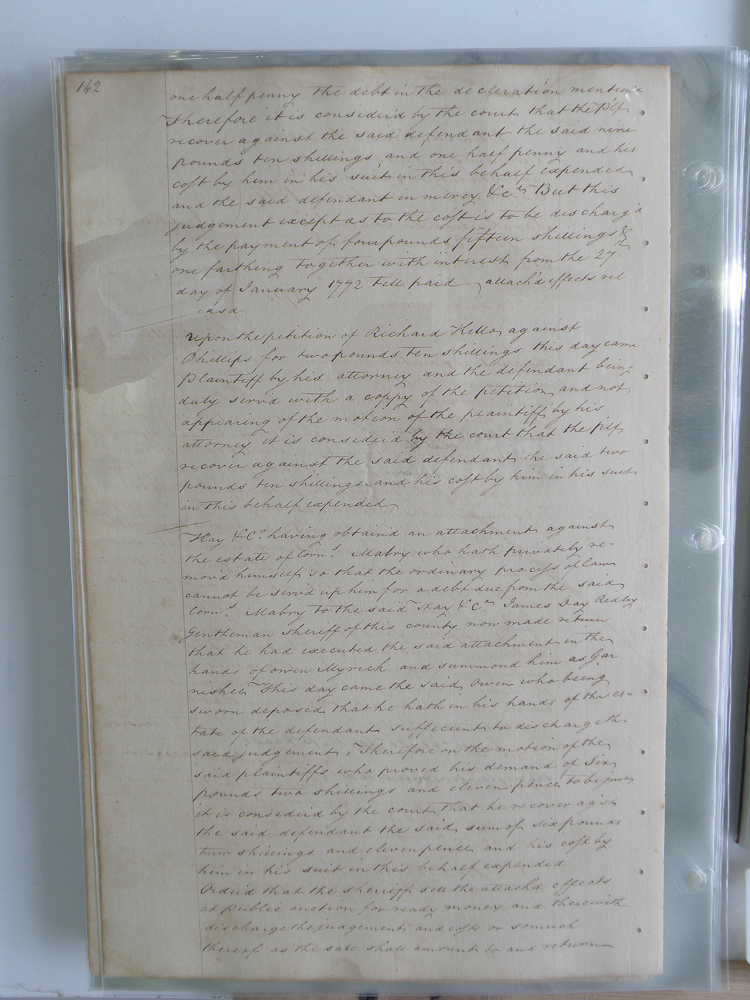 142
one half penny the debt in the declaration mention'd
Therefore it is consider'd by the court that the Plf
recover against the said defendant the said nine
pounds ten shillings and one half penny and his
cost by him in his suit in this behalf expended
and the said defendant in mercy &c. But this
judgement except as to the cost is to be discharg'd
by the payment of four pounds fifteen shillings &
one farthing together with interest from the 27th
day of January 1772 till paid, attach'd effects rel
easd
Upon the petition of Richard Kello against
Phillips for two pounds ten shillings this day came
Plaintiff by his attorney and the defendant being
duly serv'd with a coppy of the petition and not
appearing of the motion of the plaintiff by his
attorney it is consider'd by the court that the Plf
recover against the said defendant the said two
pounds ten shillings and his cost by him in his suit
in this behalf expended
Hay & Co. having obtain'd an attachment against
the estate of Corns. Mabry who hath privately re-
mov'd himself so that the ordinary process of law
cannot be serv'd up him for a debt due from the said
Corns. Mabry to the said Hay & Co. James Day Ridley
gentheman sheriff of this county now made return
that he had executed the said attachment in the
hands of owen Myrick and summond him as Gar
nishee This day came the said Owen who being
sworn deposed that he hath in his hands of the es-
tate of the defendant sufficient to discharge the
said judgement, Therefore on the motion of the
said plaintiffs who proved his demand of Six
pounds two shillings and eleven pence to be just
it is consider'd by the court that he recover agst
the said defendant the said sum of six pounds
two shillings and eleven pence and his cost by
him in his suit in this behalf expended
Order'd that the sherriff sell the attachd effects
at public auction for ready money and therewith
discharge the judgement and costs or so much
thereof as the sale shall amount to and return